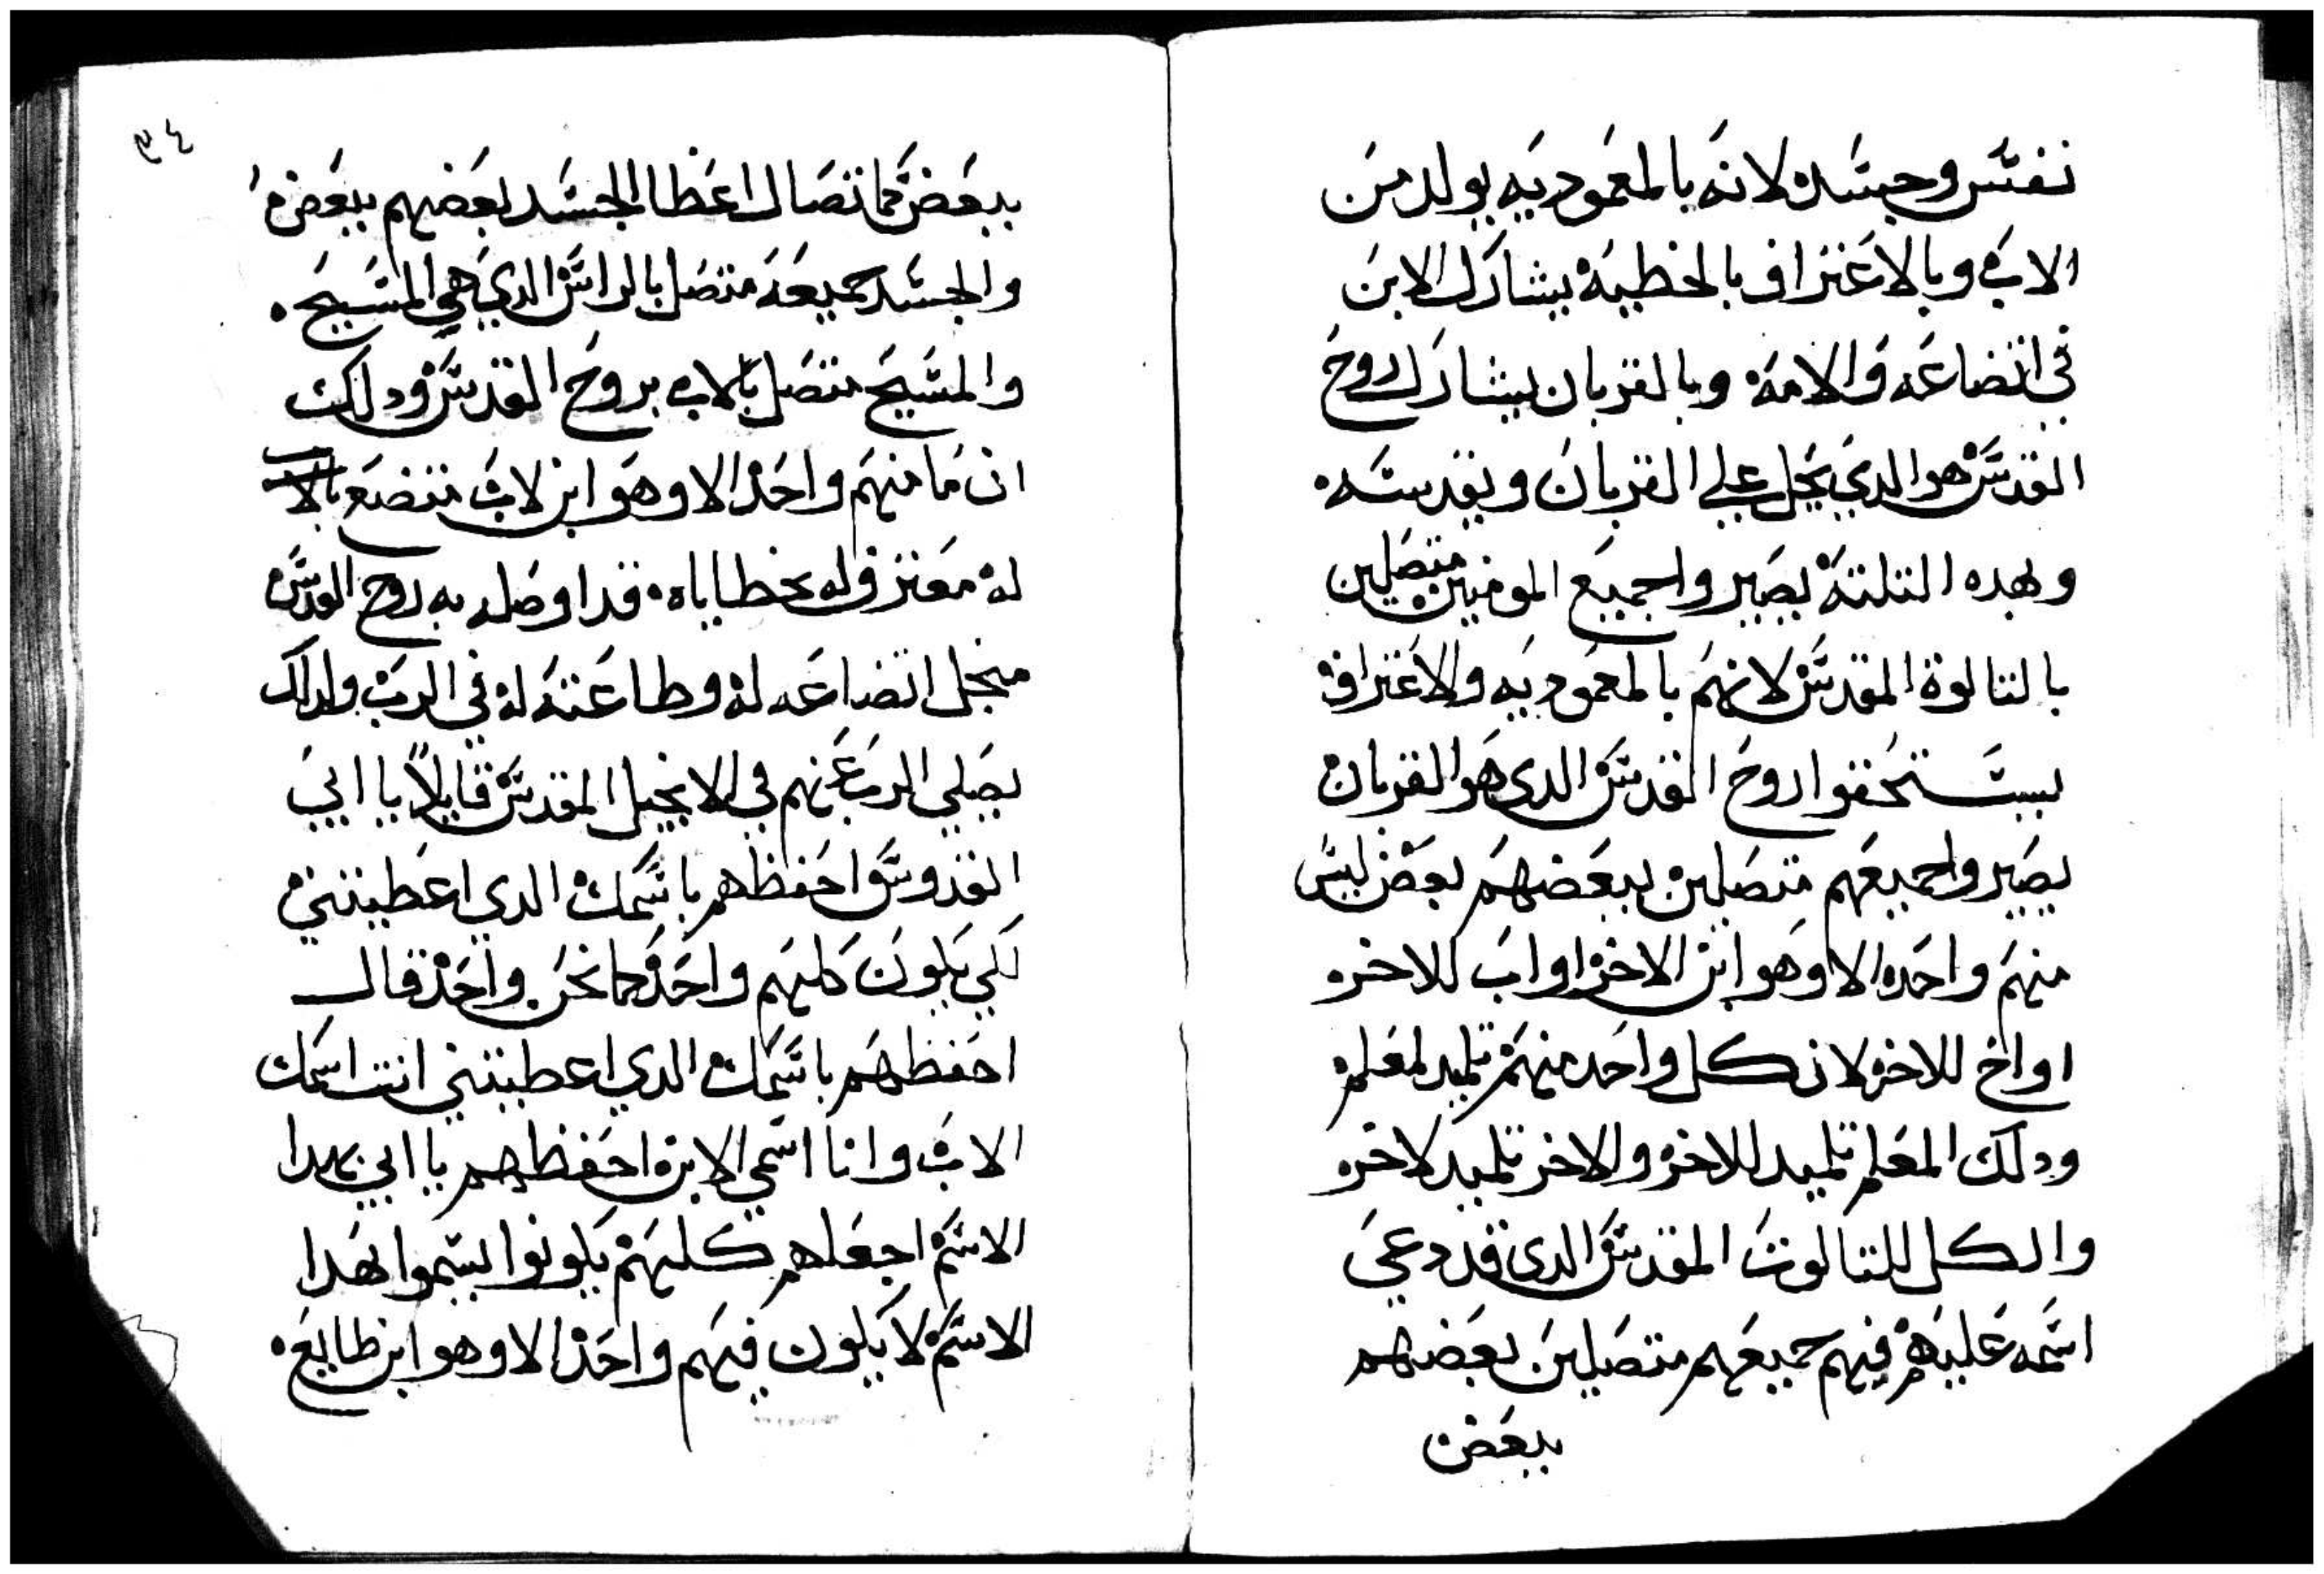 نفس وجسد لانه بالمعموديه يولد من
الاب وبالاعتراف بالخطيه يشارك الابن
في اتضاعه والامه وبالقربان يشارك روح
القدس هو الدي يحل علي القربان ويقدسه
وبهده التلته يصيروا جميع المومنين متصلين
بالتالوة المقدس لانهم بالمعموديه والاعتراف
يستحقوا روح القدس الدي هو القربان
يصيروا جميعهم متصلين ببعضهم بعض ليس
منهم واحده الا وهو ابن الاخر او اب للاخر
او اخ للاخر لان كل واحد منهم تلميد لمعلم
ودلك المعلم تلميد للاخر والاخر تلميد لاخر
والكل للتالوت المقدس الدي قد دعي
اسمه عليهم فهم جميعهم متصلين بعضهم
ببعض
٣٤
ببعض كما تتصال اعظا الجسد بعضهم ببعض
والجسد جميعه متصل بالراس الدي هي المسيح
والمسيح متصل بالاب بروح القدس ودلك
ان ما منهم واحد الا وهو ابن لاب متضع
له معترف له بخطاياه قد اوصله به روح القدس
منجل اتضاعه له وطاعته له في الرب ولدلك
يصلي الرب عنهم في الانجيل المقدس قايلاً يا ابي
القدوس احفظهم باسمك الدي اعطيتني
لكي يكون كلهم واحد كما نحن واحد قال
احفظهم باسمك الدي اعطيتني انت اسمك
الاب وانا اسمي الابن احفظهم يا ابي بهدا
الاسم اجعلهم كلهم يكونوا يسموا بهدا
الاسم لا يكون فيهم واحد الا وهو ابن طايع